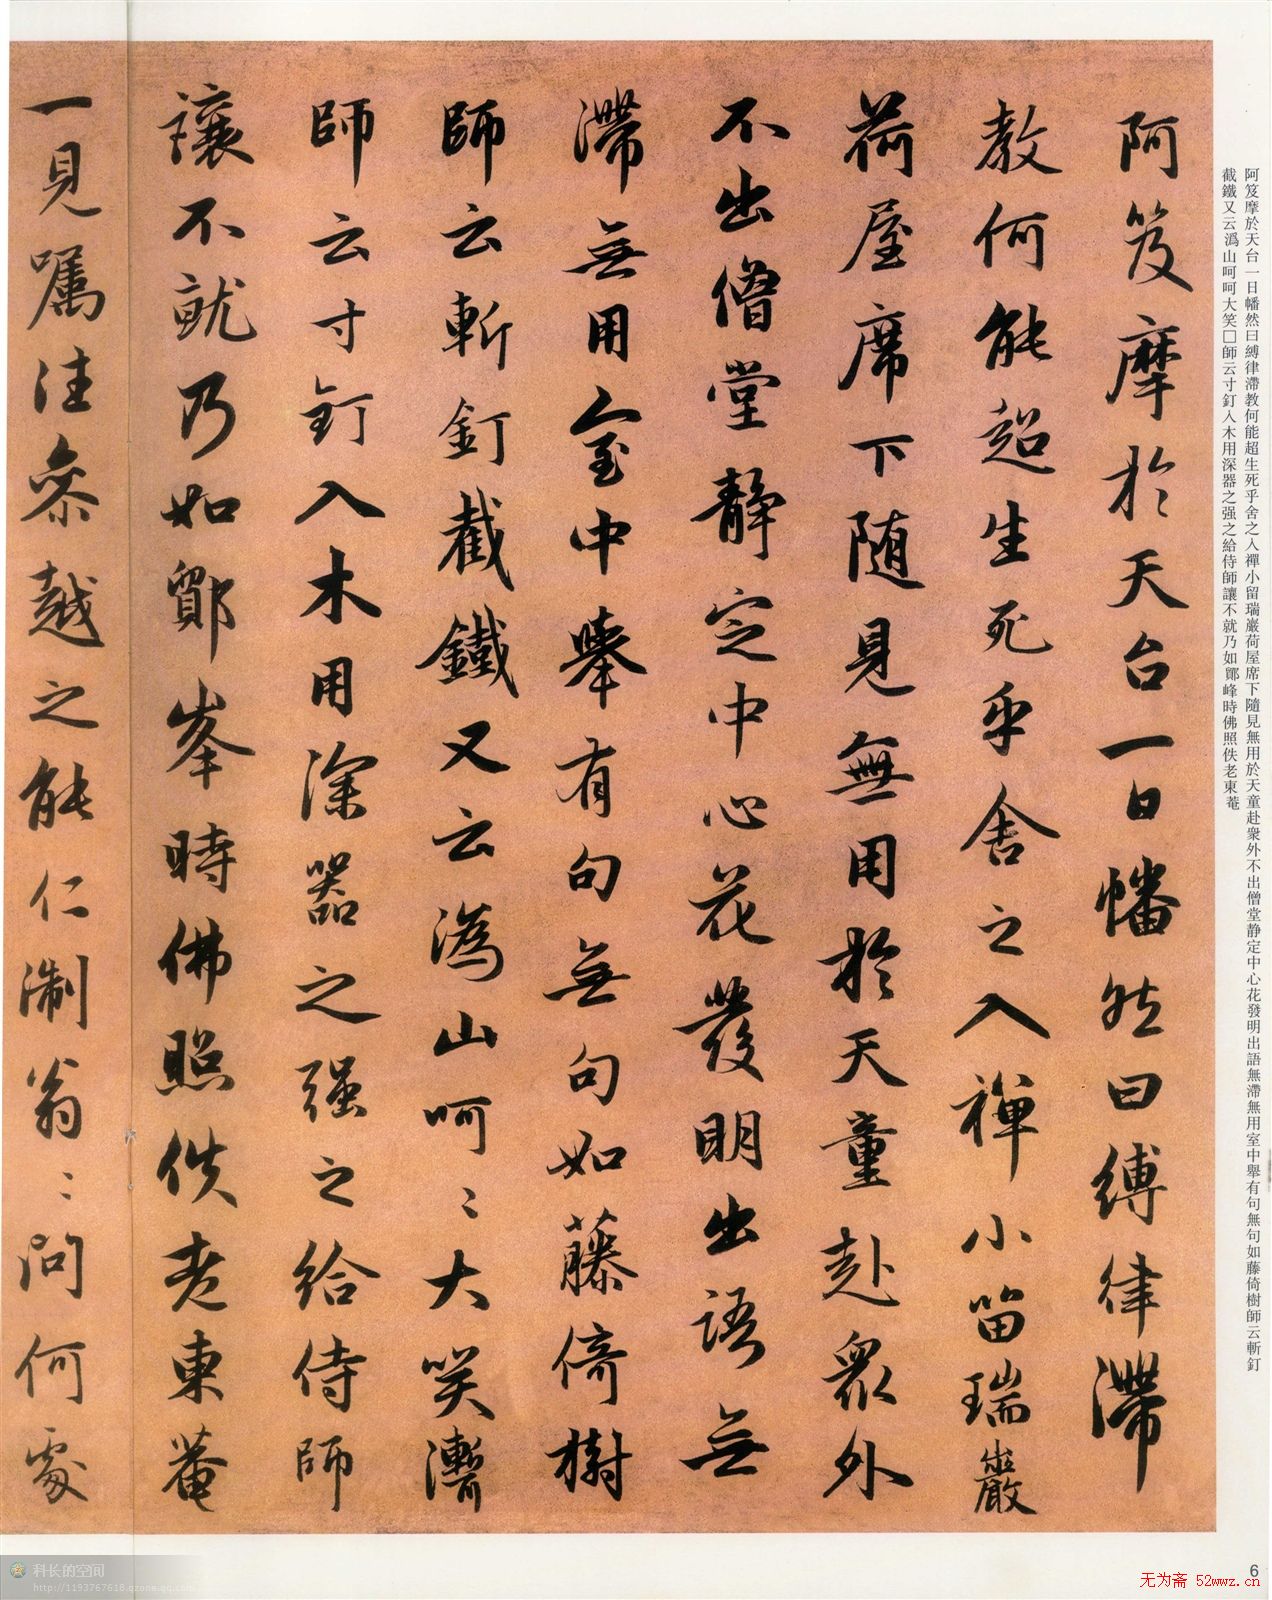 阿笈摩於天台一日幡然曰縛律滯教何能超生死乎舍之入禪小留瑞巖荷屋席下隨見無用於天童赴衆外不出僧堂静定中心花發明出語無滯無用室中舉有句無句如藤倚樹師云斬釘
截鐵又云溈山呵呵大笑□師云寸釘入木用深器之强之給侍師讓不就乃如鄮峰時佛照佚老東菴
阿笈摩於天台一日幡然曰縛律滯
教何能超生死乎舍之入禪小留瑞巖
荷屋席下随見無用於天童赴衆外
不出僧堂静定中心花發明出語無
滯無用室中舉有句無句如藤倚樹
師云斬釘截鐵又云溈山呵〻大笑
師云寸釘入木用深器之强之給侍師
讓不就乃如鄮峯時佛照佚老東菴
一見囑往參越之能仁淛翁〻問何處
科长的空间
http://1193767618.qzone.qq.com
6
无为斋 52wwz.cn